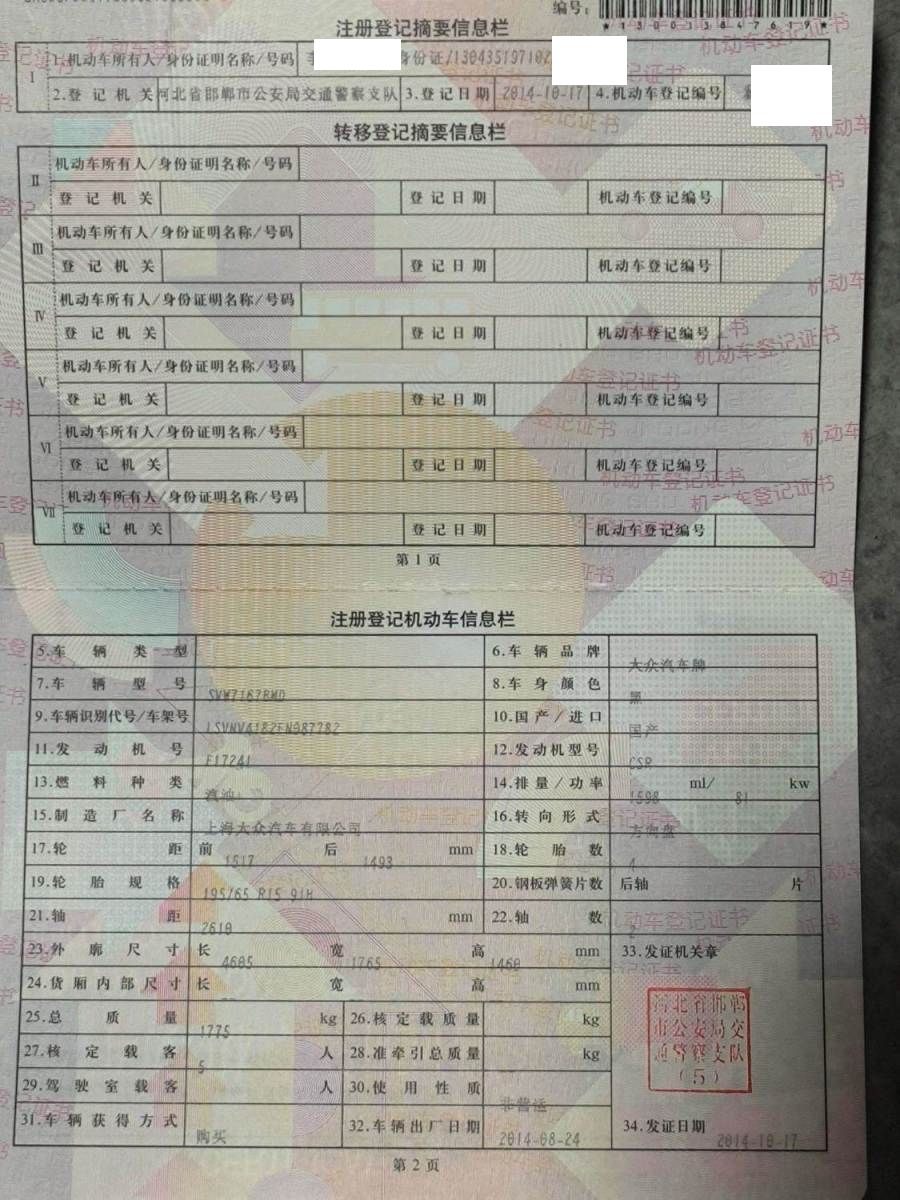 编号:
*130038476 19*
注册登记摘要信息栏
1 1.机动车所有人/身份证明名称/号码 身份证/13043519710
2.登记机关 河北省邯郸市公安局交通警察支队 3.登记日期 2014-10-17 4.机动车登记编号
转移登记摘要信息栏
Ⅱ 机动车所有人/身份证明名称/号码
登记机关 登记日期 机动车登记编号
Ⅲ 机动车所有人/身份证明名称/号码
登记机关 登记日期 机动车登记编号
Ⅳ 机动车所有人/身份证明名称/号码
登记机关 登记日期 机动车登记编号
Ⅴ 机动车所有人/身份证明名称/号码
登记机关 登记日期 机动车登记编号
Ⅵ 机动车所有人/身份证明名称/号码
登记机关 登记日期 机动车登记编号
Ⅶ 机动车所有人/身份证明名称/号码
登记机关 登记日期 机动车登记编号
第1页
注册登记机动车信息栏
5.车辆类型 6.车辆品牌 大众汽车牌
7.车辆型号 8.车身颜色 黑
9.车辆识别代号/车架号 10.国产/进口 国产
11.发动机号 F17241 12.发动机型号 CSR
13.燃料种类 汽油 14.排量/功率 1598 ml/ 81 kw
15.制造厂名称 上海大众汽车有限公司 16.转向形式 方向盘
17.轮距 前 1517 后 1493 mm 18.轮胎数 4
19.轮胎规格 195/65 R15 91H 20.钢板弹簧片数 后轴 片
21.轴距 2610 mm 22.轴数 2
23.外廓尺寸 长 4605 宽 1765 高 1460 mm 33.发证机关章
24.货厢内部尺寸 长 宽 高 mm
25.总质量 1775 kg 26.核定载质量 kg
河北省邯郸
市公安局交
通警察支队
(5)
27.核定载客 5 人 28.准牵引总质量 kg
29.驾驶室载客 人 30.使用性质 非营运
31.车辆获得方式 购买 32.车辆出厂日期 2014-08-24 34.发证日期 2014-10-17
第2页